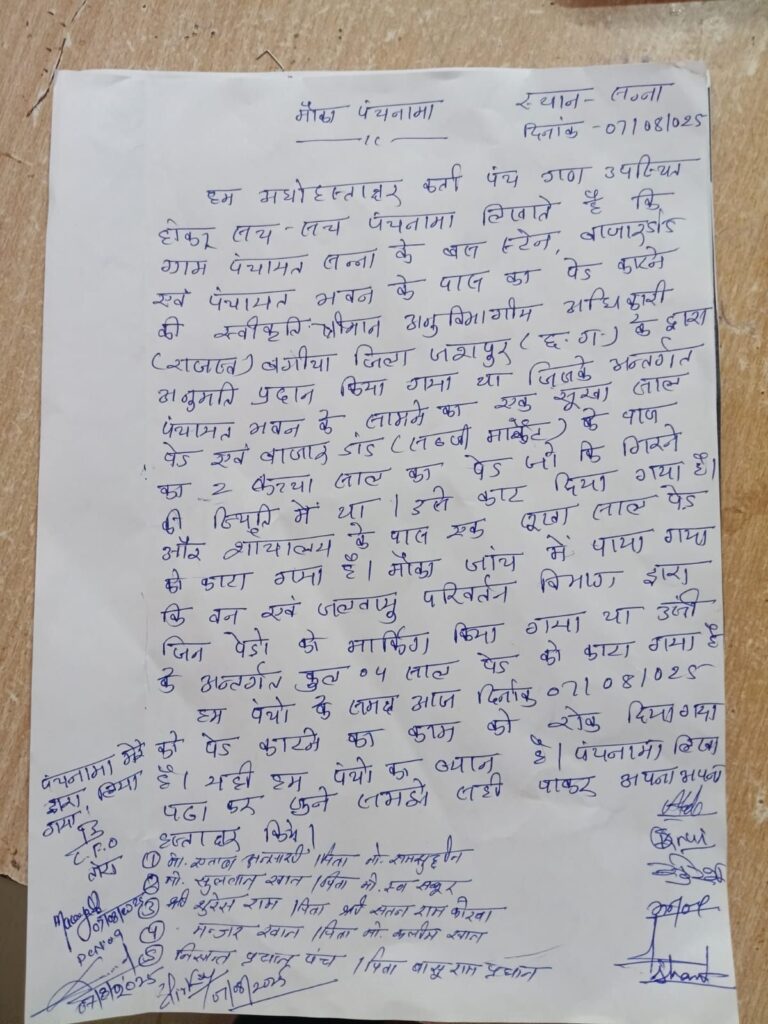 मौका पंचनामा
स्थान - सन्ना
दिनांक - 07/08/025
हम अधोहस्ताक्षर कर्ता पंच गण उपस्थित
होकर सच-सच पंचनामा लिखाते है कि
ग्राम पंचायत सन्ना के बस स्टेन, बाजारडांड
एवं पंचायत भवन के पास का पेड काटने
की स्वीकृति श्रीमान अनुविभागीय अधिकारी
(राजस्व) बगीचा जिला जशपुर (छ.ग.) के द्वारा
अनुमति प्रदान किया गया था जिसके अन्तर्गत
पंचायत भवन के सामने का एक सूखा साल
पेड एवं बाजार डांड (सब्जी मार्केट) के पास
का 2 कच्चा साल का पेड जो कि गिरने
की स्थिति में था। उसे काट दिया गया है।
और शौचालय के पास एक सूखा साल पेड
को काटा गया है। मौका जांच में पाया गया
कि वन एवं जलवायु परिवर्तन विभाग द्वारा
जिन पेडो को मार्किंग किया गया था उसी
के अन्तर्गत कुल 04 साल पेड को काटा गया है
हम पंचो के समक्ष आज दिनांक 07/08/025
को पेड काटने का काम को रोक दिया गया
है। यही हम पंचो का ब्यान है। पंचनामा लिखा
पढा कर सुने समझे सही पाकर अपना अपना
हस्ताक्षर किये।
पंचनामा मेरे
द्वारा लिया
गया।
① मो. अन्सारी / पिता मो.
② मो. सुलतान खान / पिता मो.
③ श्री सुरेस राम / पिता श्री सतन राम कोरवा
④ मन्जर खान / पिता मो. कलीम खान
⑤ निसान्त प्रधान पंच / पिता बासु राम प्रधान
07/08/2025
07/8/2025